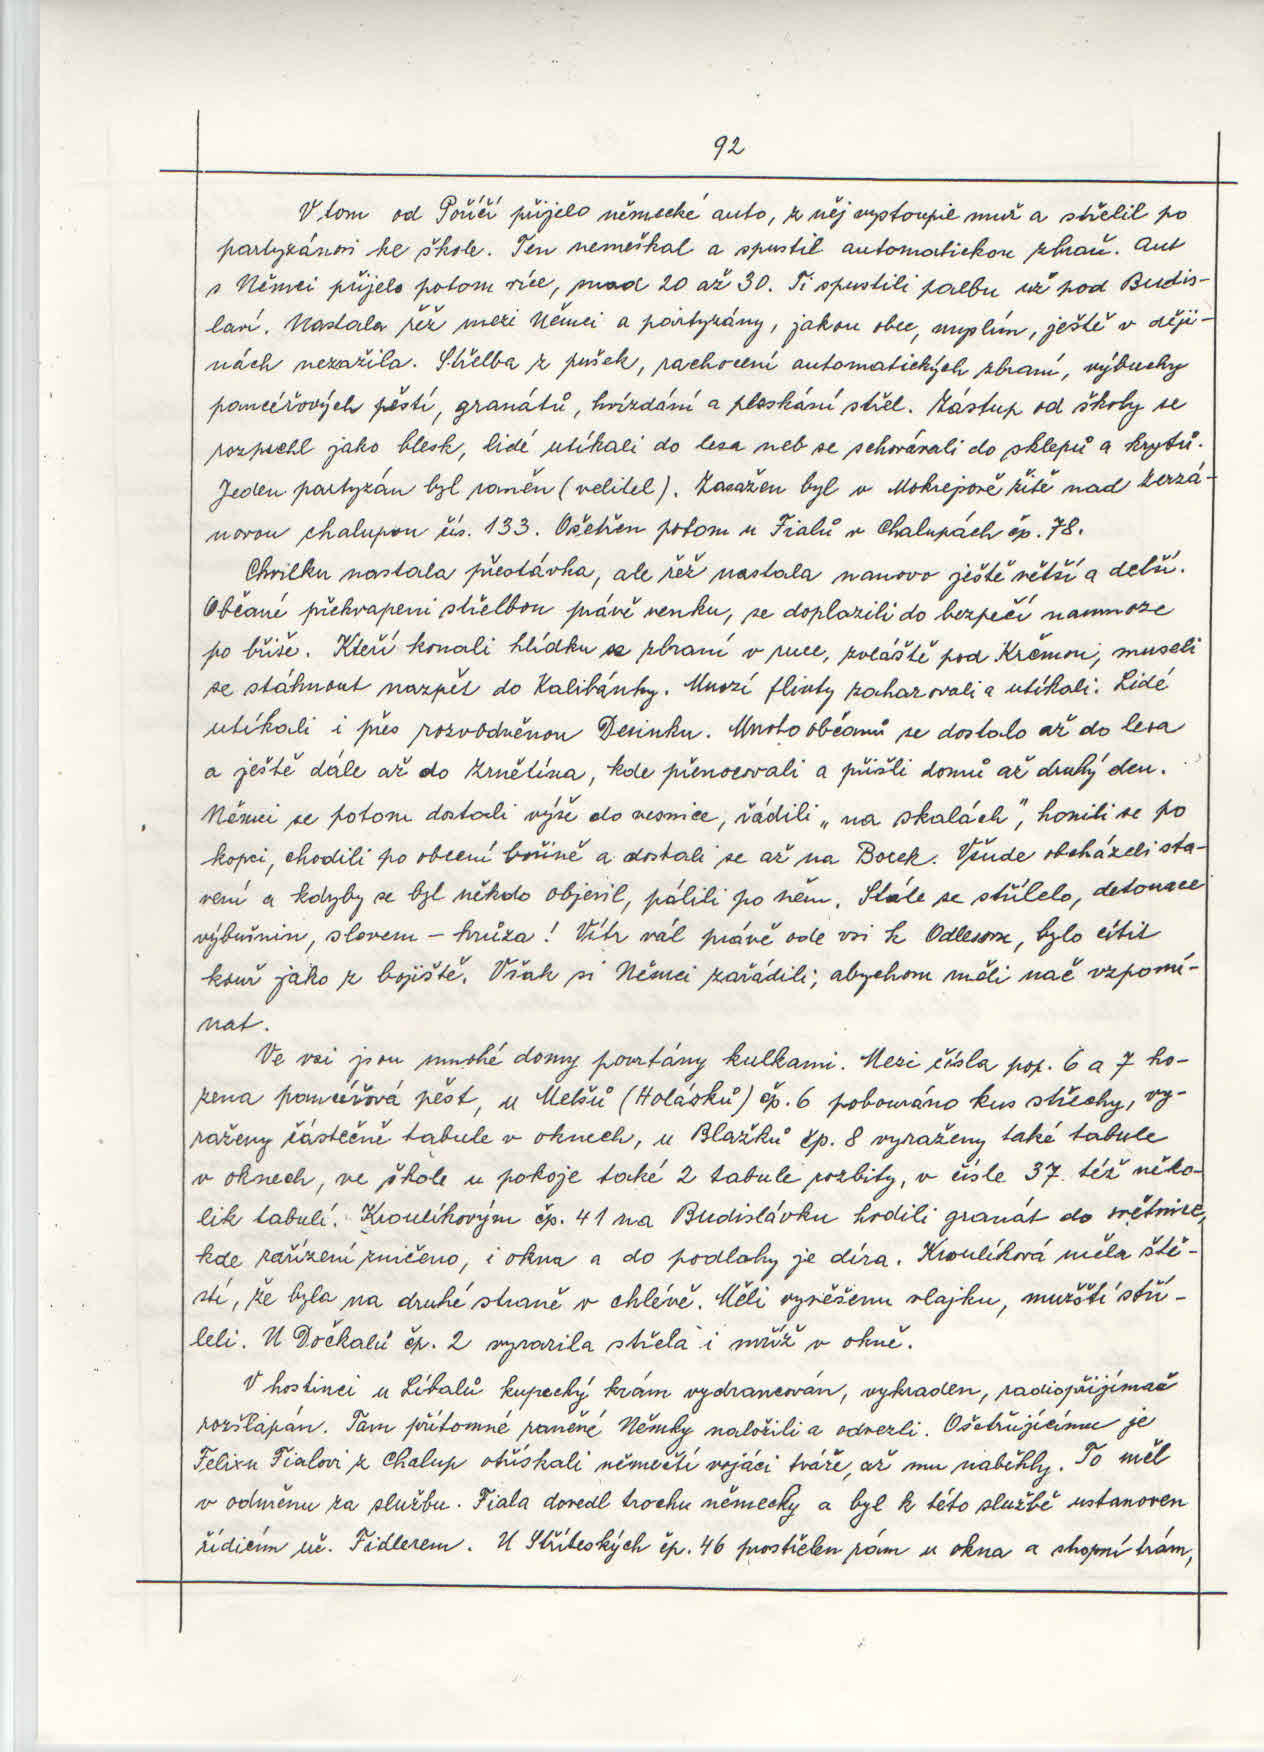 92
V tom od Poříčí přijelo německé auto, z něj vystoupil muž a střelil po
partyzánovi ke škole. Ten nemeškal a spustil automatickou zbraň. Aut
s Němci přijelo potom více, snad 20 až 30. Ti spustili palbu už pod Budis-
laví. Nastala řež mezi Němci a partyzány, jakou obec, myslím, ještě v ději-
nách nezažila. Střelba z pušek, rachocení automatických zbraní, výbuchy
pancéřových pěstí, granátů, hvízdání a pleskání střel. Zástup od školy se
rozprchl jako blesk, lidé utíkali do lesa neb se schovávali do sklepů a krytů.
Jeden partyzán byl raněn (velitel). Zasažen byl v Mokrejšově žitě nad Zerzá-
novou chalupou čís. 133. Ošetřen potom u Fialů v Chalupách čp. 78.
Chvilku nastala přestávka, ale řež nastala nanovo ještě větší a delší.
Občané překvapeni střelbou právě venku, se doplazili do bezpečí namnoze
po břiše. Kteří konali hlídku se zbraní v ruce, zvláště pod Krčmou, museli
se stáhnout nazpět do Kalibánky. Mnozí flinty zahazovali a utíkali. Lidé
utíkali i přes rozvodněnou Desinku. Mnoho občanů se dostalo až do lesa
a ještě dále až do Zrnětína, kde přenocovali a přišli domů až druhý den.
Němci se potom dostali výše do vesnice, řádili „na skalách", honili se po
kopci, chodili po obecní bořině a dostali se až na Borek. Všude obcházeli sta-
vení a kdyby se byl někdo objevil, pálili po něm. Stále se střílelo, detonace
výbušnin, slovem – hrůza! Vítr vál právě ode vsi k Odlesově, bylo cítit
kouř jako z bojiště. Však si Němci zařádili; abychom měli nač vzpomí-
nat.
Ve vsi jsou mnohé domy povrtány kulkami. Mezi čísla pop. 6 a 7 ho-
zena pancéřová pěst, u Melšů (Holásků) čp. 6 pobouráno kus střechy, vy-
raženy částečně tabule v oknech, u Blažků čp. 8 vyraženy také tabule
v oknech, ve škole u pokoje také 2 tabule rozbity, v čísle 37 též něko-
lik tabulí. Kroulíkovým čp. 41 na Budislávku hodili granát do světnice,
kde zařízení zničeno, i okna a do podlahy je díra. Kroulíková měla ště-
stí, že byla na druhé straně v chlévě. Měli vyvěšenu vlajku, mužští stří-
leli. U Dočkalů čp. 2 vyrazila střela i mříž v okně.
V hostinci u Líbalů kupecký krám vydrancován, vykraden, radiopřijímač
rozšlapán. Tam přítomné raněné Němky naložili a odvezli. Ošetřujícímu je
Felixu Fialovi z Chalup otřískali němečtí vojáci tváře, až mu naběhly. To měl
v odměnu za službu. Fiala dovedl trochu německy a byl k této službě ustanoven
řídícím uč. Fidlerem. U Stříteských čp. 46 prostřelen rám u okna a stropní trám,